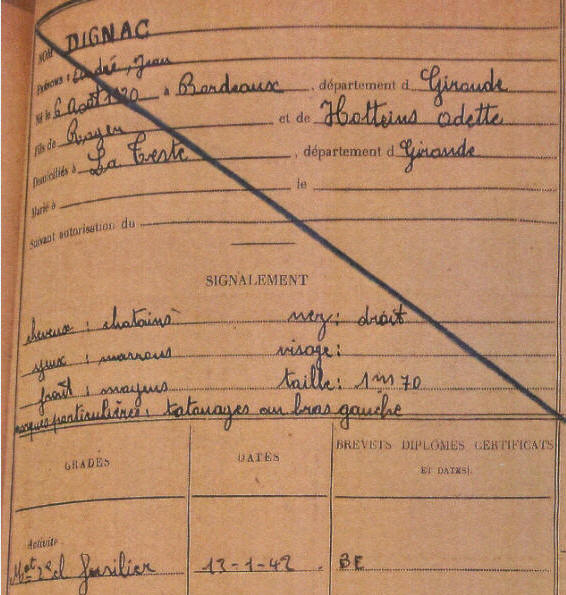 NOM DIGNAC
Prénoms : André, Jean
Né le 6 Août 1920 à Bordeaux, département d Gironde
Fils de Roger et de Hosteins Odette
Domiciliés à La Teste, département d Gironde
Marié à le
Suivant autorisation du
SIGNALEMENT
cheveux : chatains nez : droit
yeux : marrons visage :
front : moyens taille : 1m70
marques particulières : tatouages au bras gauche
GRADES DATES BREVETS DIPLOMES CERTIFICATS
ET DATES).
Activité
Mat 2e cl fusilier 13-1-42. BE